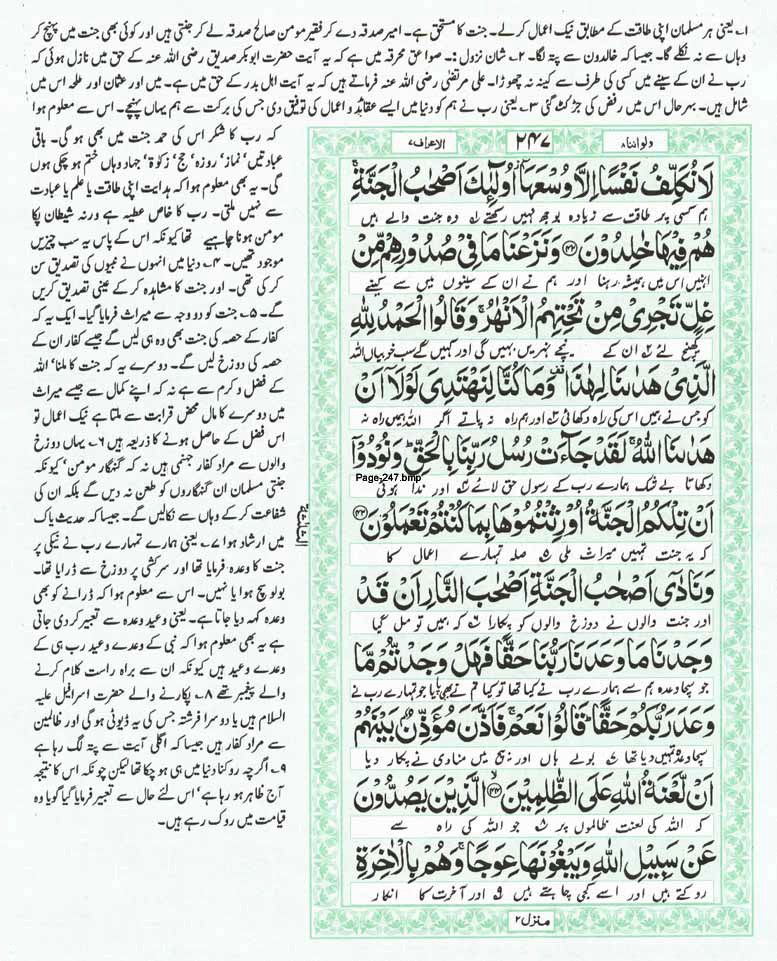 ۱؎ یعنی ہر مسلمان اپنی طاقت کے مطابق نیک اعمال کرلے۔ جنت کا مستحق ہے۔ امیر صدقہ دے کر فقیر مومن صالح صدقہ لے کر جنتی ہیں اور کوئی بھی جنت میں پہنچ کر
وہاں سے نہ نکلے گا۔ جیسا کہ خالدون سے پتہ لگا۔ ۲؎ شان نزول:۔ صواعق محرقہ میں ہے کہ یہ آیت حضرت ابوبکر صدیق رضی اللہ عنہ کے حق میں نازل ہوئی کہ
رب نے ان کے سینے میں کسی کی طرف سے کینہ نہ چھوڑا۔ علی مرتضٰی رضی اللہ عنہ فرماتے ہیں کہ یہ آیت اہل بدر کے حق میں ہے۔ میں اور عثمان اور طلحہ اس میں
شامل ہیں۔ بہرحال اس میں رفض کی جڑ کٹ گئی ۳؎ یعنی رب نے ہم کو دنیا میں ایسے عقائد و اعمال کی توفیق دی جس کی برکت سے ہم یہاں پہنچے۔ اس سے معلوم ہوا
کہ رب کا شکر اس کی حمد جنت میں بھی ہو گی۔ باقی
عبادتیں' نماز' روزہ' حج' زکوٰۃ' جہاد وہاں ختم ہو چکی ہوں
گی۔ یہ بھی معلوم ہوا کہ ہدایت اپنی طاقت یا علم یا عبادت
سے نہیں ملتی۔ رب کا خاص عطیہ ہے ورنہ شیطان پکا
مومن ہونا چاہیے تھا کیونکہ اس کے پاس یہ سب چیزیں
موجود تھیں۔ ۴؎ دنیا میں انہوں نے نبیوں کی تصدیق سن
کر کی تھی۔ اور جنت کا مشاہدہ کر کے عینی تصدیق کریں
گے۔ ۵؎ جنت کو دو وجہ سے میراث فرمایا گیا۔ ایک یہ کہ
کفار کے حصہ کی جنت بھی وہ ہی لیں گے جیسے کفار ان کے
حصہ کی دوزخ لیں گے۔ دوسرے یہ کہ جنت کا ملنا' اللہ
کے فضل و کرم سے ہے نہ کہ اپنے کمال سے جیسے میراث
میں دوسرے کا مال محض قرابت سے ملتا ہے نیک اعمال تو
اس فضل کے حاصل ہونے کا ذریعہ ہیں ۶؎ یہاں دوزخ
والوں سے مراد کفار جہنمی ہیں نہ کہ گنہگار مومن' کیونکہ
جنتی مسلمان ان گنہگاروں کو طعن نہ دیں گے بلکہ ان کی
شفاعت کر کے وہاں سے نکالیں گے۔ جیسا کہ حدیث پاک
میں ارشاد ہوا ۷؎ یعنی ہمارے تمہارے رب نے نیکی پر
جنت کا وعدہ فرمایا تھا اور سرکشی پر دوزخ سے ڈرایا تھا۔
بولو سچ ہوا یا نہیں۔ اس سے معلوم ہوا کہ ڈرانے کو بھی
وعدہ کہہ دیا جاتا ہے۔ یعنی وعید وعدہ سے تعبیر کر دی جاتی
ہے یہ بھی معلوم ہوا کہ نبی کے وعدے وعید رب ہی کے
وعدے وعید ہیں کیونکہ ان سے براہ راست کلام کرنے
والے پیغمبر تھے ۸؎ پکارنے والے حضرت اسرافیل علیہ
السلام ہیں یا دوسرا فرشتہ جس کی یہ ڈیوٹی ہو گی اور ظالمین
سے مراد کفار ہیں جیسا کہ اگلی آیت سے پتہ لگ رہا ہے
۹؎ اگرچہ روکنا دنیا میں ہی ہو چکا تھا لیکن چونکہ اس کا نتیجہ
آج ظاہر ہو رہا ہے' اس لئے حال سے تعبیر فرمایا گیا گویا وہ
قیامت میں روک رہے ہیں۔
ولواننا ۸ ۲۴۷ الاعراف ۷
لَا نُكَلِّفُ نَفْسًا اِلَّا وُسْعَهَاۤ اُولٰٓئِكَ اَصْحٰبُ الْجَنَّةِۚ
ہم کسی پر طاقت سے زیادہ بوجھ نہیں رکھتے ۱؎ وہ جنت والے ہیں
هُمْ فِيْهَا خٰلِدُوْنَ۝۴۲ وَنَزَعْنَا مَا فِيْ صُدُوْرِهِمْ مِّنْ
انہیں اس میں ہمیشہ رہنا اور ہم نے ان کے سینوں میں سے کینے
غِلٍّ تَجْرِيْ مِنْ تَحْتِهِمُ الْاَنْهٰرُۚ وَقَالُوا الْحَمْدُ لِلّٰهِ
کھینچ لئے ۲؎ ان کے نیچے نہریں بہیں گی اور کہیں گے سب خوبیاں اللہ
الَّذِيْ هَدٰىنَا لِهٰذَا وَمَا كُنَّا لِنَهْتَدِيَ لَوْلَاۤ اَنْ
کو جس نے ہمیں اس کی راہ دکھائی ۳؎ اور ہم راہ نہ پاتے اگر اللہ ہمیں راہ نہ
هَدٰىنَا اللّٰهُۚ لَقَدْ جَآءَتْ رُسُلُ رَبِّنَا بِالْحَقِّؕ وَنُوْدُوْۤا
دکھاتا بے شک ہمارے رب کے رسول حق لائے ۴؎ اور ندا ہوئی
Page-247.bmp
اَنْ تِلْكُمُ الْجَنَّةُ اُوْرِثْتُمُوْهَا بِمَا كُنْتُمْ تَعْمَلُوْنَ۝۴۳
کہ یہ جنت تمہیں میراث ملی ۵؎ صلہ تمہارے اعمال کا
وَنَادٰۤى اَصْحٰبُ الْجَنَّةِ اَصْحٰبَ النَّارِ اَنْ قَدْ
اور جنت والوں نے دوزخ والوں کو پکارا ۶؎ کہ ہمیں تو مل گیا
وَجَدْنَا مَا وَعَدَنَا رَبُّنَا حَقًّا فَهَلْ وَجَدْتُّمْ مَّا
جو سچا وعدہ ہم سے ہمارے رب نے کیا تھا تو کیا تم نے بھی پایا جو تمہارے رب نے
وَعَدَ رَبُّكُمْ حَقًّاؕ قَالُوْا نَعَمْۚ فَاَذَّنَ مُؤَذِّنٌۢ بَيْنَهُمْ
سچا وعدہ تمہیں دیا تھا ۷؎ بولے ہاں اور بیچ میں منادی نے پکار دیا
اَنْ لَّعْنَةُ اللّٰهِ عَلَى الظّٰلِمِيْنَ۝۴۴ الَّذِيْنَ يَصُدُّوْنَ
کہ اللہ کی لعنت ظالموں پر ۸؎ جو اللہ کی راہ سے
عَنْ سَبِيْلِ اللّٰهِ وَيَبْغُوْنَهَا عِوَجًاۚ وَهُمْ بِالْاٰخِرَةِ
روکتے ہیں اور اسے کجی چاہتے ہیں ۹؎ اور آخرت کا انکار
منزل ۲